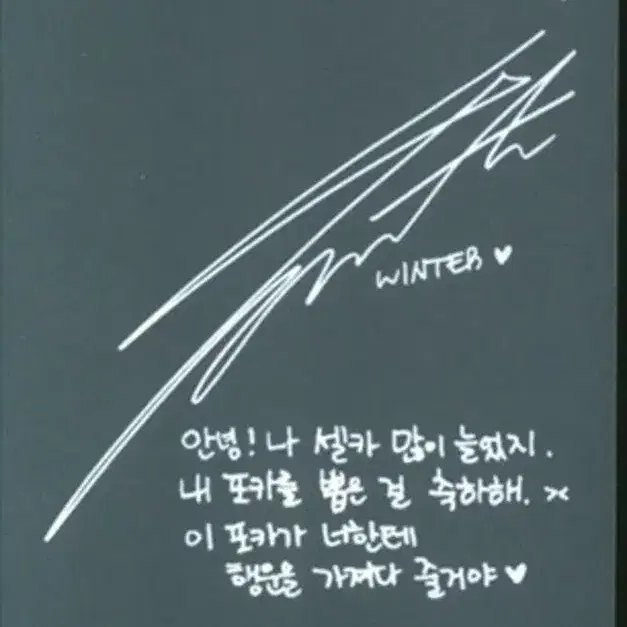 WINTER ♥
안녕! 나 셀카 많이 늘었지.
내 포카를 뽑은 걸 축하해. ><
이 포카가 너한테
행운을 가져다 줄거야 ♥